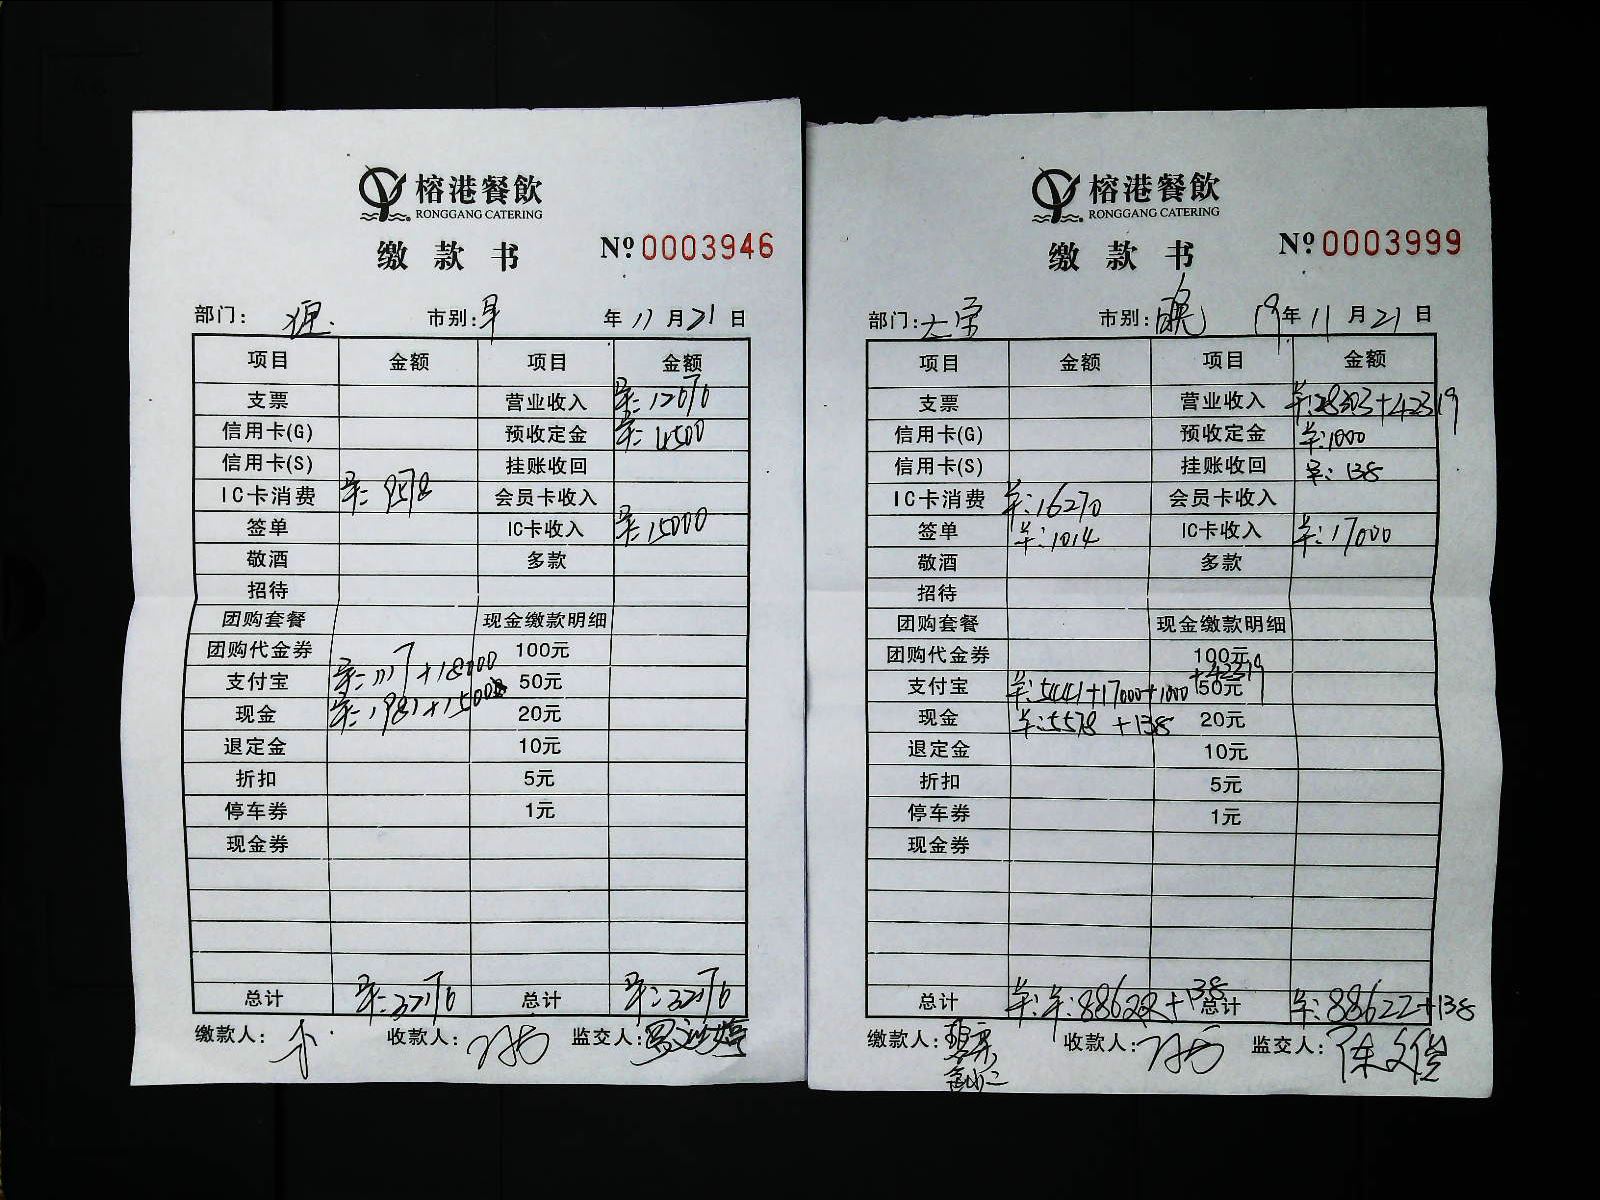 榕港餐飲
RONGGANG CATERING
缴款书 №0003946
部门: 市别:早 年11月21日
项目 金额 项目 金额
支票 营业收入 单:12676
信用卡(G) 预收定金 单:4500
信用卡(S) 挂账收回
IC卡消费 会员卡收入
签单 IC卡收入 单:15000
敬酒 多款
招待
团购套餐 现金缴款明细
团购代金券 100元
支付宝 50元
现金 20元
退定金 10元
折扣 5元
停车券 1元
现金券
总计 单:32176 总计 单:32176
缴款人: 收款人: 监交人:
榕港餐飲
RONGGANG CATERING
缴款书 №0003999
部门: 市别:晚 19年11月21日
项目 金额 项目 金额
支票 营业收入 单:28303+42319
信用卡(G) 预收定金 单:1000
信用卡(S) 挂账收回 单:138
IC卡消费 单:16270 会员卡收入
签单 单:1014 IC卡收入 单:17000
敬酒 多款
招待
团购套餐 现金缴款明细
团购代金券 100元
支付宝 单:5441+17000+1000+42319 50元
现金 单:5578+138 20元
退定金 10元
折扣 5元
停车券 1元
现金券
总计 单:单:88622+138 总计 单:88622+138
缴款人: 收款人: 监交人:陈文俊